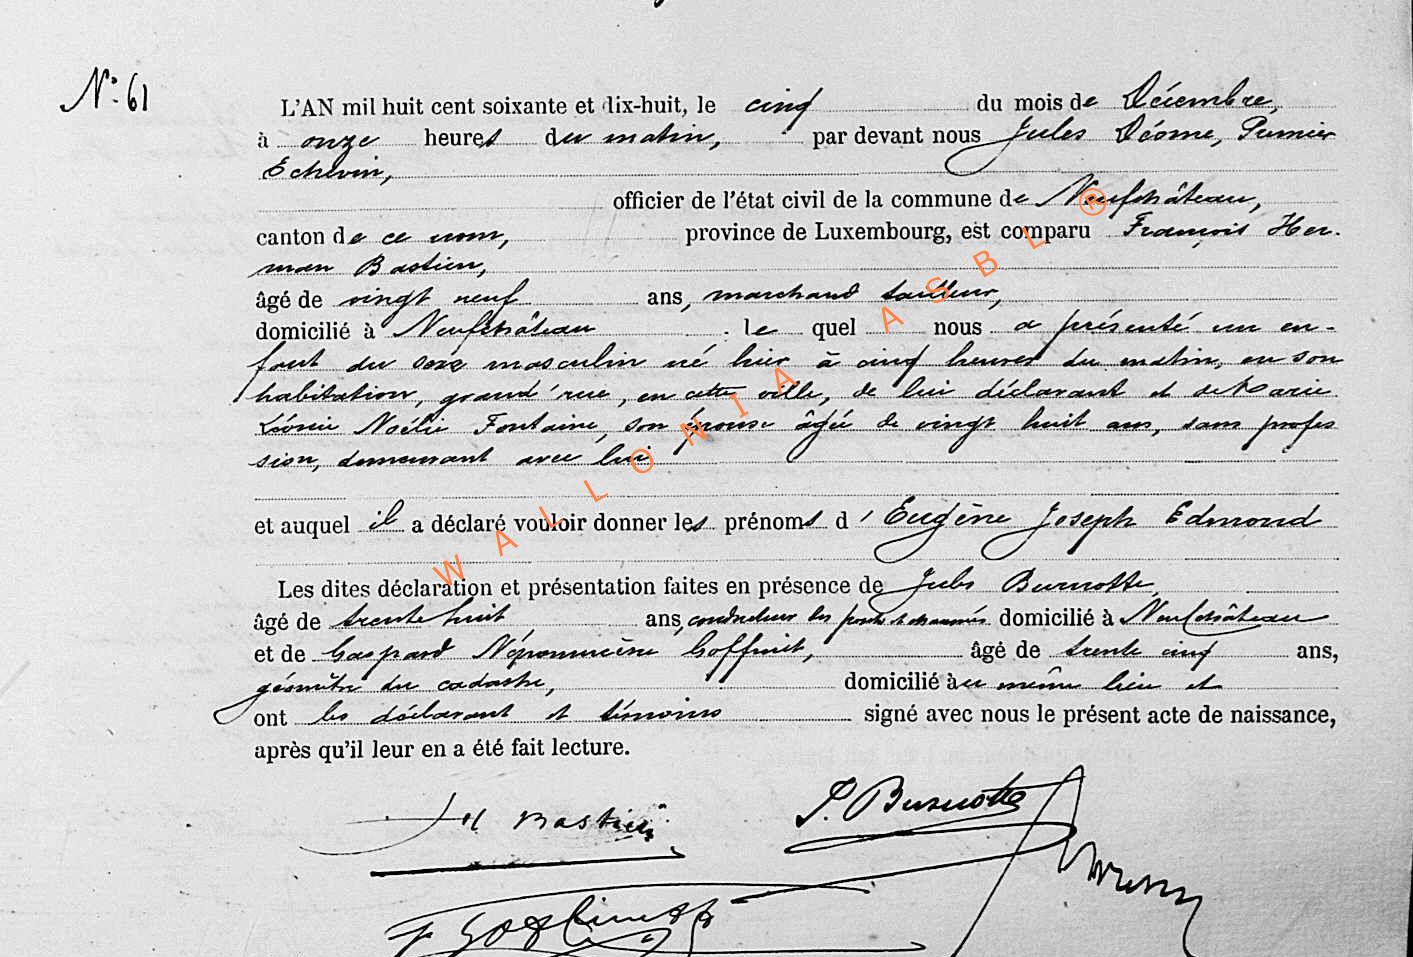 N° 61
L'AN mil huit cent soixante et dix-huit, le cinq du mois de Décembre,
à onze heures du matin, par devant nous Jules Déome, Premier
Echevin,
officier de l'état civil de la commune de Neufchâteau,
canton de ce nom, province de Luxembourg, est comparu François Her-
man Bastien,
âgé de vingt neuf ans, marchand tailleur,
domicilié à Neufchâteau le quel nous a présenté un en-
fant du sexe masculin né hier à cinq heures du matin, en son
habitation, grand'rue, en cette ville, de lui déclarant et de Marie
Léonie Noélie Fontaine, son épouse âgée de vingt huit ans, sans profes
sion, demeurant avec lui
et auquel il a déclaré vouloir donner les prénoms d'Eugène Joseph Edmond
Les dites déclaration et présentation faites en présence de Jules Burnotte,
âgé de trente huit ans, conducteur des ponts et chaussées domicilié à Neufchâteau
et de Gaspard Népomucène Goffinet, âgé de trente cinq ans,
géomètre du cadastre, domicilié au même lieu et
ont les déclarant et témoins signé avec nous le présent acte de naissance,
après qu'il leur en a été fait lecture.
H Bastien
J. Burnotte
Goffinet
WALLONIA ASBL ®